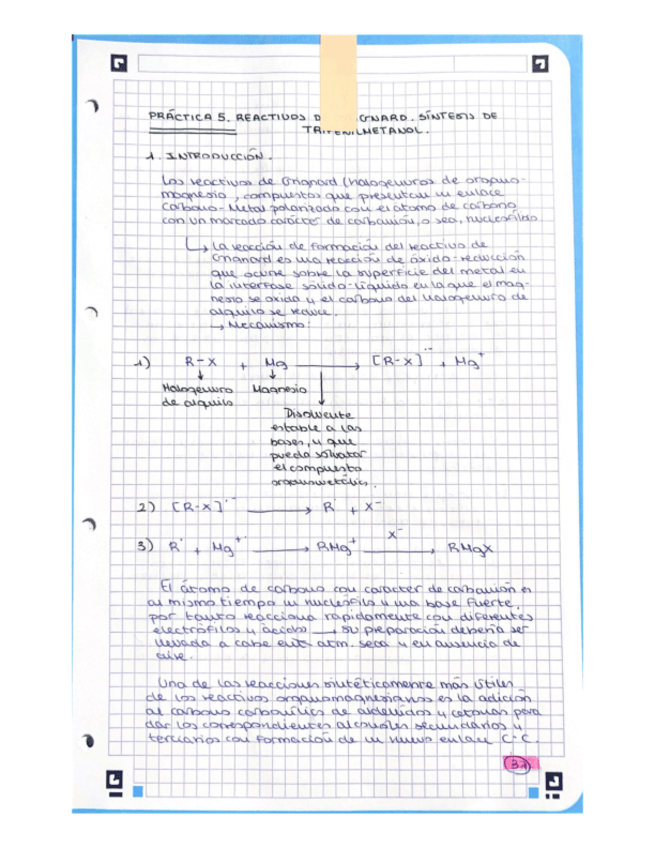 PRÁCTICA 5. REACTIVOS D GNARD. SÍNTESIS DE
TRIFENILMETANOL.
1. INTRODUCCIÓN.
Los reactivos de Grignard (halogenuros de organo-
magnesio, compuestos que presentan un enlace
carbono-metal polarizado con el átomo de carbono
con un marcado carácter de carbanión, o sea, nucleófilo
↳ La reacción de formación del reactivo de
Grignard es una reacción de óxido-reducción
que ocurre sobre la superficie del metal en
la interfase sólido-líquido en la que el mag-
nesio se oxida y el carbono del halogenuro de
alquilo se reduce.
→ Mecanismo:
1) R-X + Mg → [R-X]·⁻ + Mg⁺
Halogenuro Magnesio
de alquilo
Disolvente
estable a las
bases, y que
pueda solvatar
el compuesto
organometálico.
2) [R-X]·⁻ → R· + X⁻
3) R· + Mg⁺· → RMg⁺ X⁻ → RMgX
El átomo de carbono con carácter de carbanión es
al mismo tiempo un nucleófilo y una base fuerte,
por tanto reacciona rápidamente con diferentes
electrófilos y ácidos → su preparación debería ser
llevada a cabo atm. seca y en ausencia de
aire.
Una de las reacciones sintéticamente más útiles
de los reactivos organomagnesianos es la adición
al carbono carbonílico de aldehídos y cetonas para
dar los correspondientes alcoholes secundarios y
terciarios con formación de un nuevo enlace C-C.